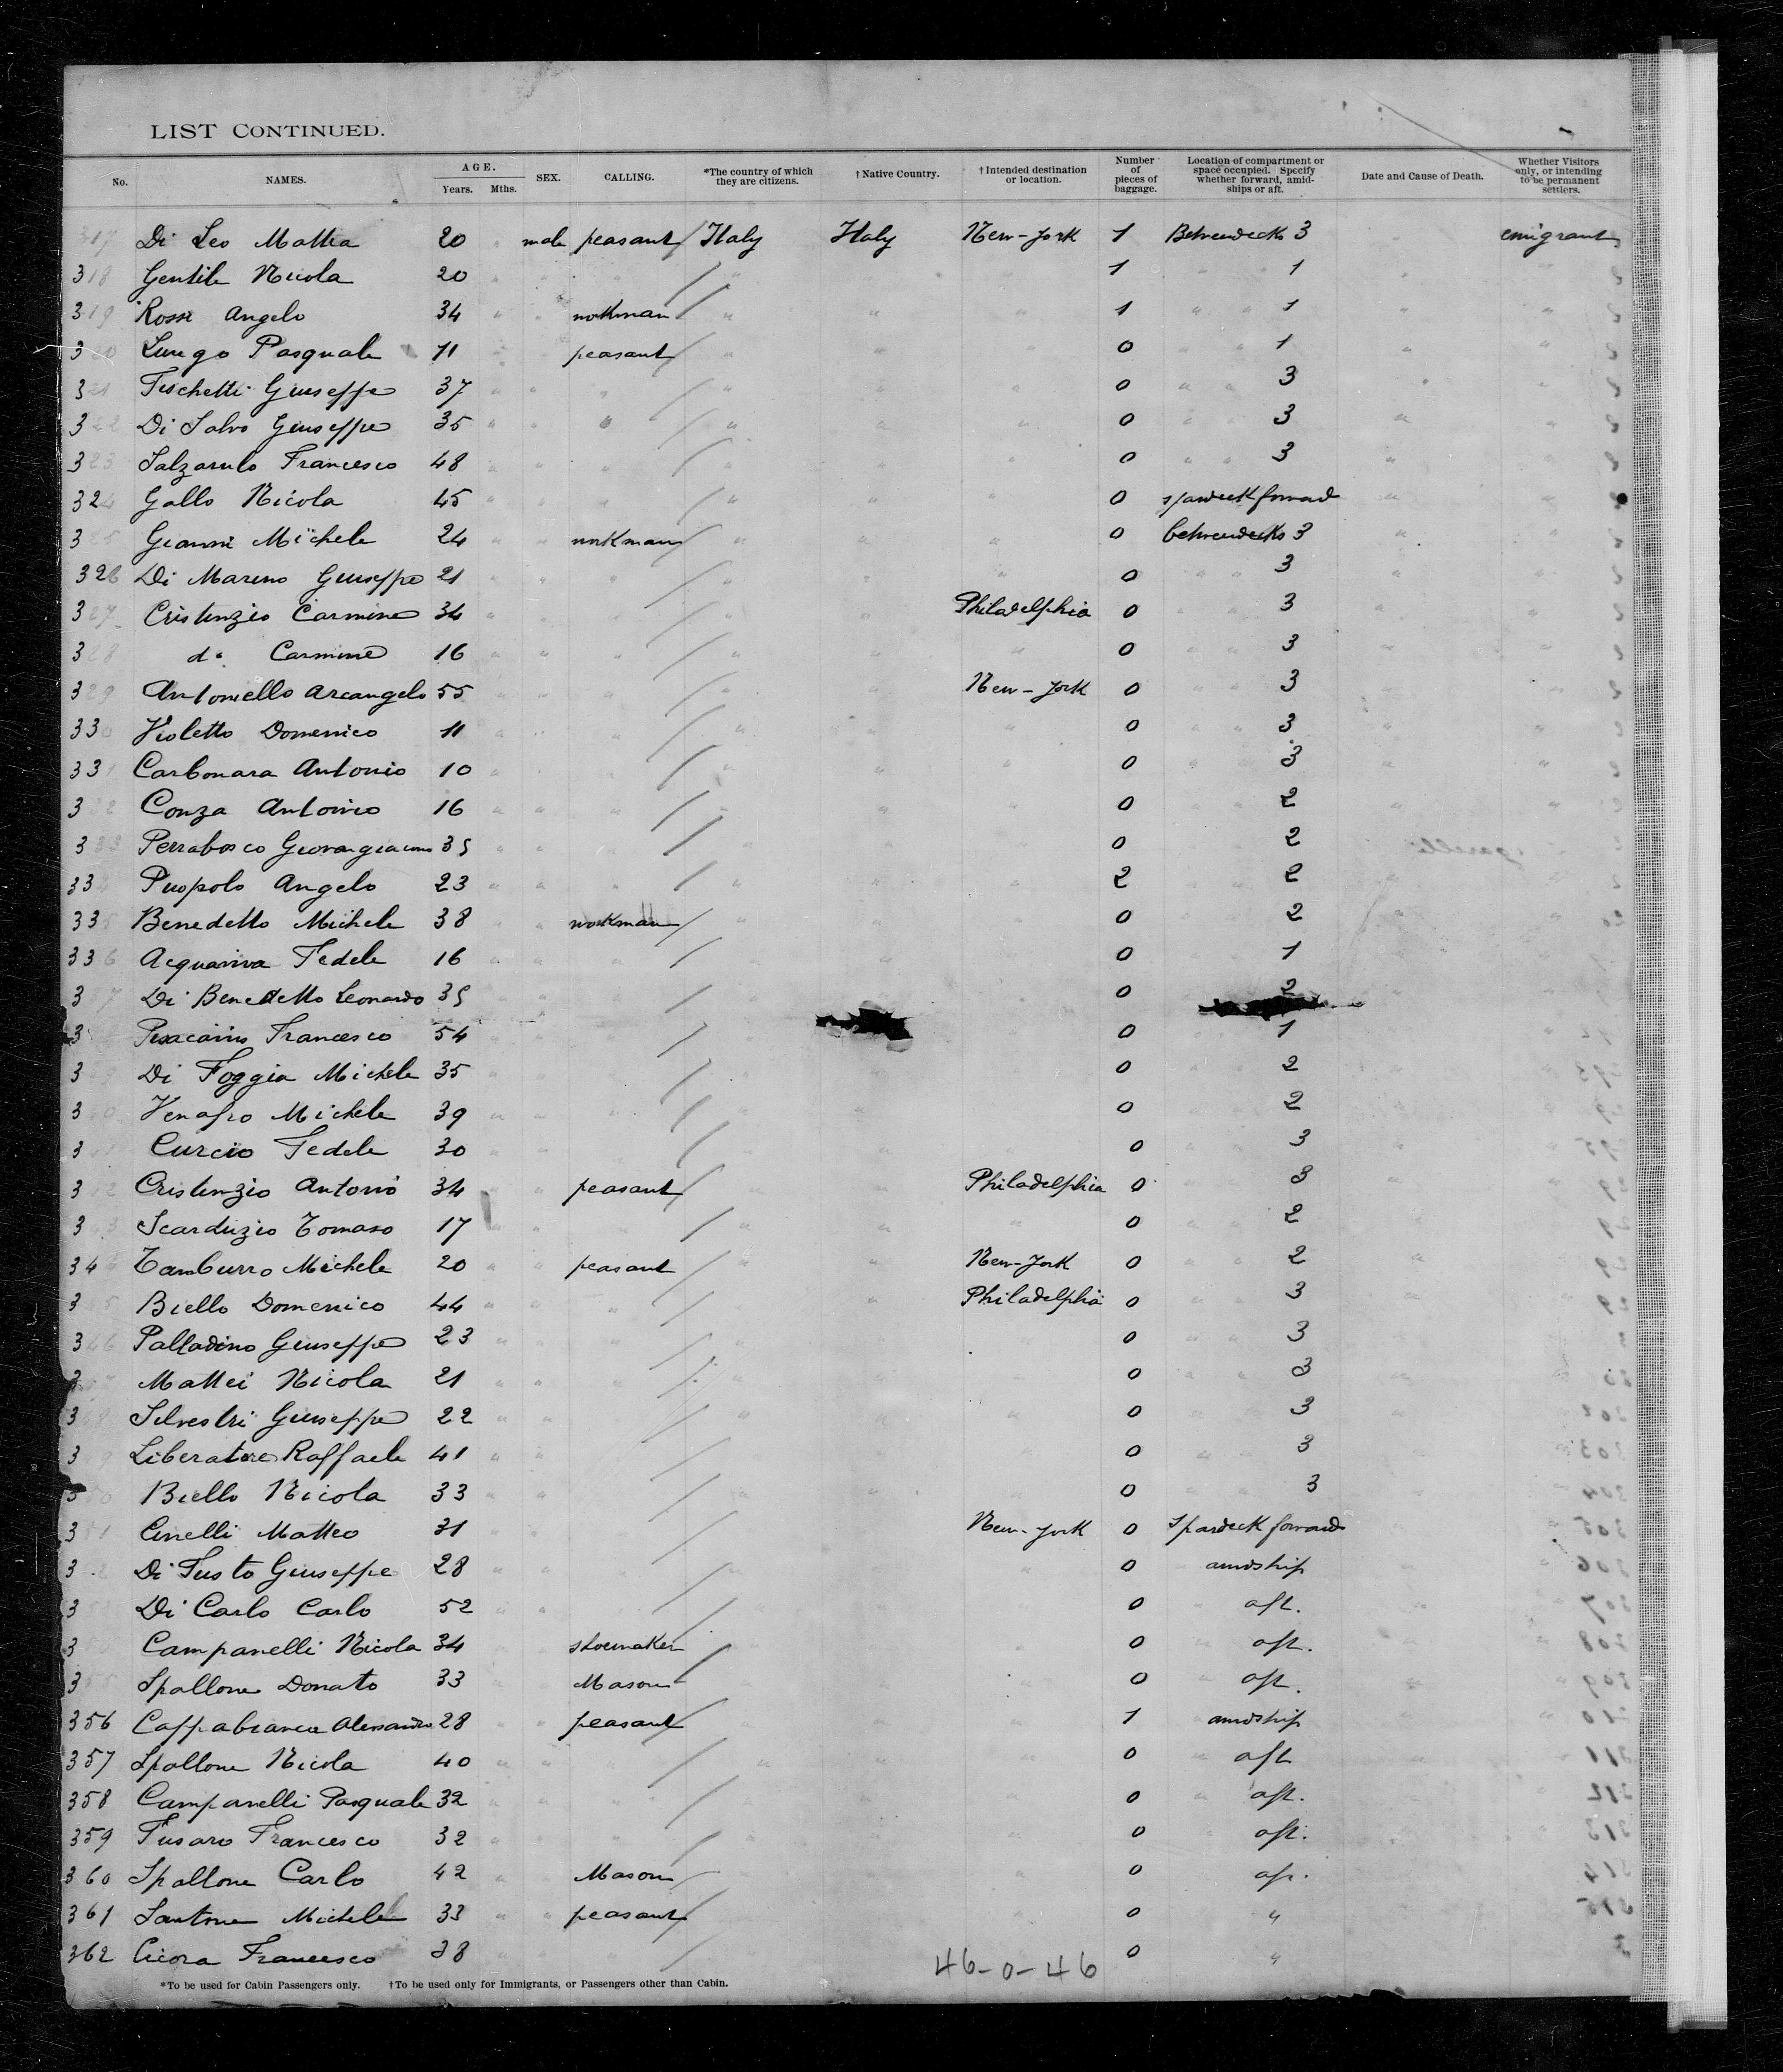 LIST CONTINUED.
No. NAMES. AGE. Years. Mths. SEX. CALLING. *The country of which they are citizens. †Native Country. †Intended destination or location. Number of pieces of baggage. Location of compartment or space occupied. Specify whether forward, amidships or aft. Date and Cause of Death. Whether Visitors only, or intending to be permanent settlers.
317 Di Leo Mattia 20 " male peasant Italy Italy New-York 1 Betweendecks 3 " emigrant
318 Gentile Nicola 20 " " " " " " 1 " 1
319 Rossi Angelo 34 " " workman " " " 1 " " 1
320 Lungo Pasquale 11 " " peasant " " " 0 " " 1
321 Fischetti Giuseppe 37 " " " " " " 0 " " 3
322 Di Salvo Giuseppe 35 " " " " " " 0 " " 3
323 Salzarulo Francesco 48 " " " " " " 0 " " 3
324 Gallo Nicola 45 " " " " " " 0 spardeck forward
325 Gianni Michele 24 " " workman " " " 0 betweendecks 3
326 Di Mareno Giuseppe 21 " " " " " " 0 " " 3
327 Cristenzio Carmine 34 " " " " " Philadelphia 0 " " 3
328 do Carmine 16 " " " " " " 0 " " 3
329 Antoniello Arcangelo 55 " " " " " New-York 0 " " 3
330 Violetto Domenico 11 " " " " " " 0 " " 3
331 Carbonara Antonio 10 " " " " " " 0 " " 3
332 Conza Antonio 16 " " " " " " 0 " " 2
333 Perrabosco Giovangiacomo 35 " " " " " " 0 " " 2
334 Puopolo Angelo 23 " " " " " " 2 " " 2
335 Benedetto Michele 38 " " workman " " " 0 " " 2
336 Acquaviva Fedele 16 " " " " " " 0 " " 1
337 Di Benedetto Leonardo 35 " " 0 2
3 Francesco 54 0 1
339 Di Foggia Michele 35 0 2
340 Venafro Michele 39 " " " 0 " " 2
341 Curcio Fedele 30 " " " 0 " " 3
342 Cristenzio Antonio 34 " " peasant Philadelphia 0 " " 3
343 Scarduzio Tomaso 17 " " " " " " 0 " " 2
344 Tamburro Michele 20 " " peasant " " New-York 0 " " 2
345 Biello Domenico 44 " " " " Philadelphia 0 " " 3
346 Palladino Giuseppe 23 " " " 0 " " 3
347 Mattei Nicola 21 " " " " 0 " " 3
348 Silvestri Giuseppe 22 " " " " 0 " " 3
349 Liberatore Raffaele 41 " " 0 " " 3
350 Biello Nicola 33 " " 0 3
351 Cinelli Matteo 31 " " New-York 0 Spardeck forward
352 Di Iusto Giuseppe 28 " " 0 amidship
353 Di Carlo Carlo 52 " " 0 aft.
354 Campanelli Nicola 34 shoemaker 0 " aft.
355 Spallone Donato 33 Mason 0 " aft.
356 Cappabianca Alessandro 28 " " peasant 1 amidship
357 Spallone Nicola 40 " " " 0 " aft
358 Campanelli Pasquale 32 " " " 0 " aft.
359 Fusaro Francesco 32 " " " 0 " aft.
360 Spallone Carlo 42 " " Mason 0 aft.
361 Santone Michele 33 " " peasant 0 "
362 Francesco 38 0 "
46-0-46
*To be used for Cabin Passengers only. †To be used only for Immigrants, or Passengers other than Cabin.